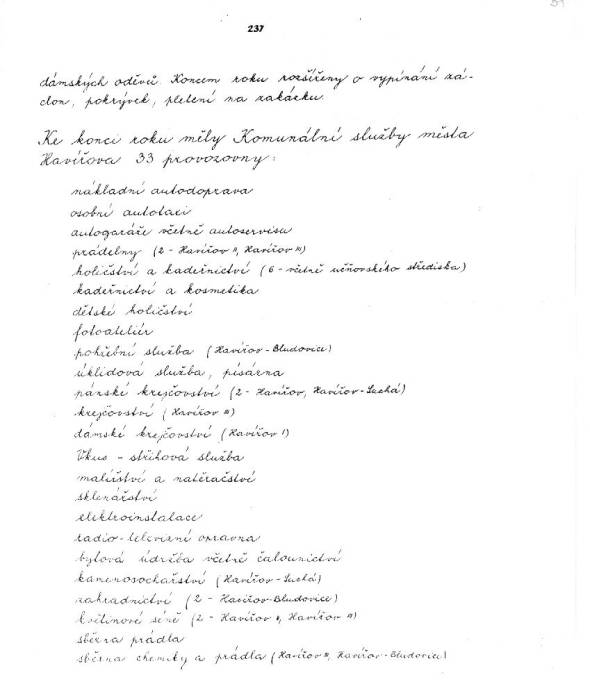 237
dámských oděvů. Koncem roku rozšířeny o vypínání zá-
clon, pokrývek, pletení na zakázku.
Ke konci roku měly Komunální služby města
Havířova 33 provozovny:
nákladní autodoprava
osobní autotaxi
autogaráže včetně autoservisu
prádelny (2 - Havířov II, Havířov III)
holičství a kadeřnictví (6 - včetně učňovského střediska)
kadeřnictví a kosmetika
dětské holičství
fotoateliér
pohřební služba (Havířov-Bludovice)
úklidová služba, písárna
pánské krejčovství (2 - Havířov, Havířov-Suchá)
krejčovství (Havířov III)
dámské krejčovství (Havířov I)
Vkus - střihová služba
malířství a natěračství
sklenářství
elektroinstalace
radio-televizní opravna
bytová údržba včetně čalounictví
kamenosochařství (Havířov-Suchá)
zahradnictví (2 - Havířov-Bludovice)
květinové síně (2 - Havířov, Havířov)
sběrna prádla
sběrna chemiky a prádla (Havířov, Havířov-Bludovice)